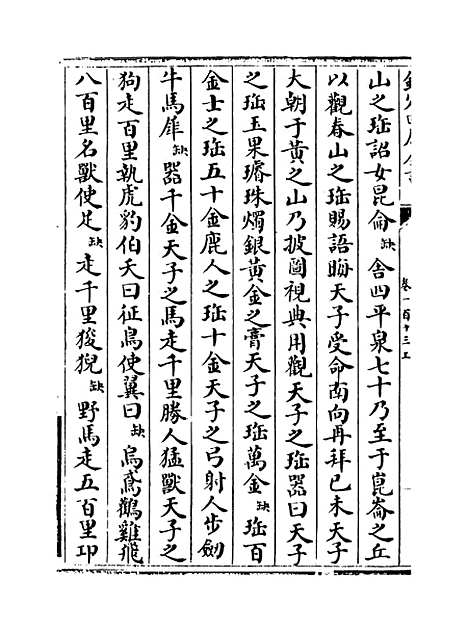 欽定四庫全書
卷一百十三上
山之珤詔女昆侖缺舍四平泉七十乃至于崑崙之丘
以觀春山之珤賜語晦天子受命南向再拜已未天子
大朝于黃之山乃披圖視典用觀天子之珤器曰天子
之珤玉果璿珠燭銀黃金之膏天子之珤萬金缺珤百
金士之珤五十金鹿人之珤十金天子之弓射人步劍
牛馬犀缺器千金天子之馬走千里勝人猛獸天子之
狗走百里執虎豹伯夭曰征鳥使翼曰缺烏鳶鸛雞飛
八百里名獸使足缺走千里狻猊缺野馬走五百里卭